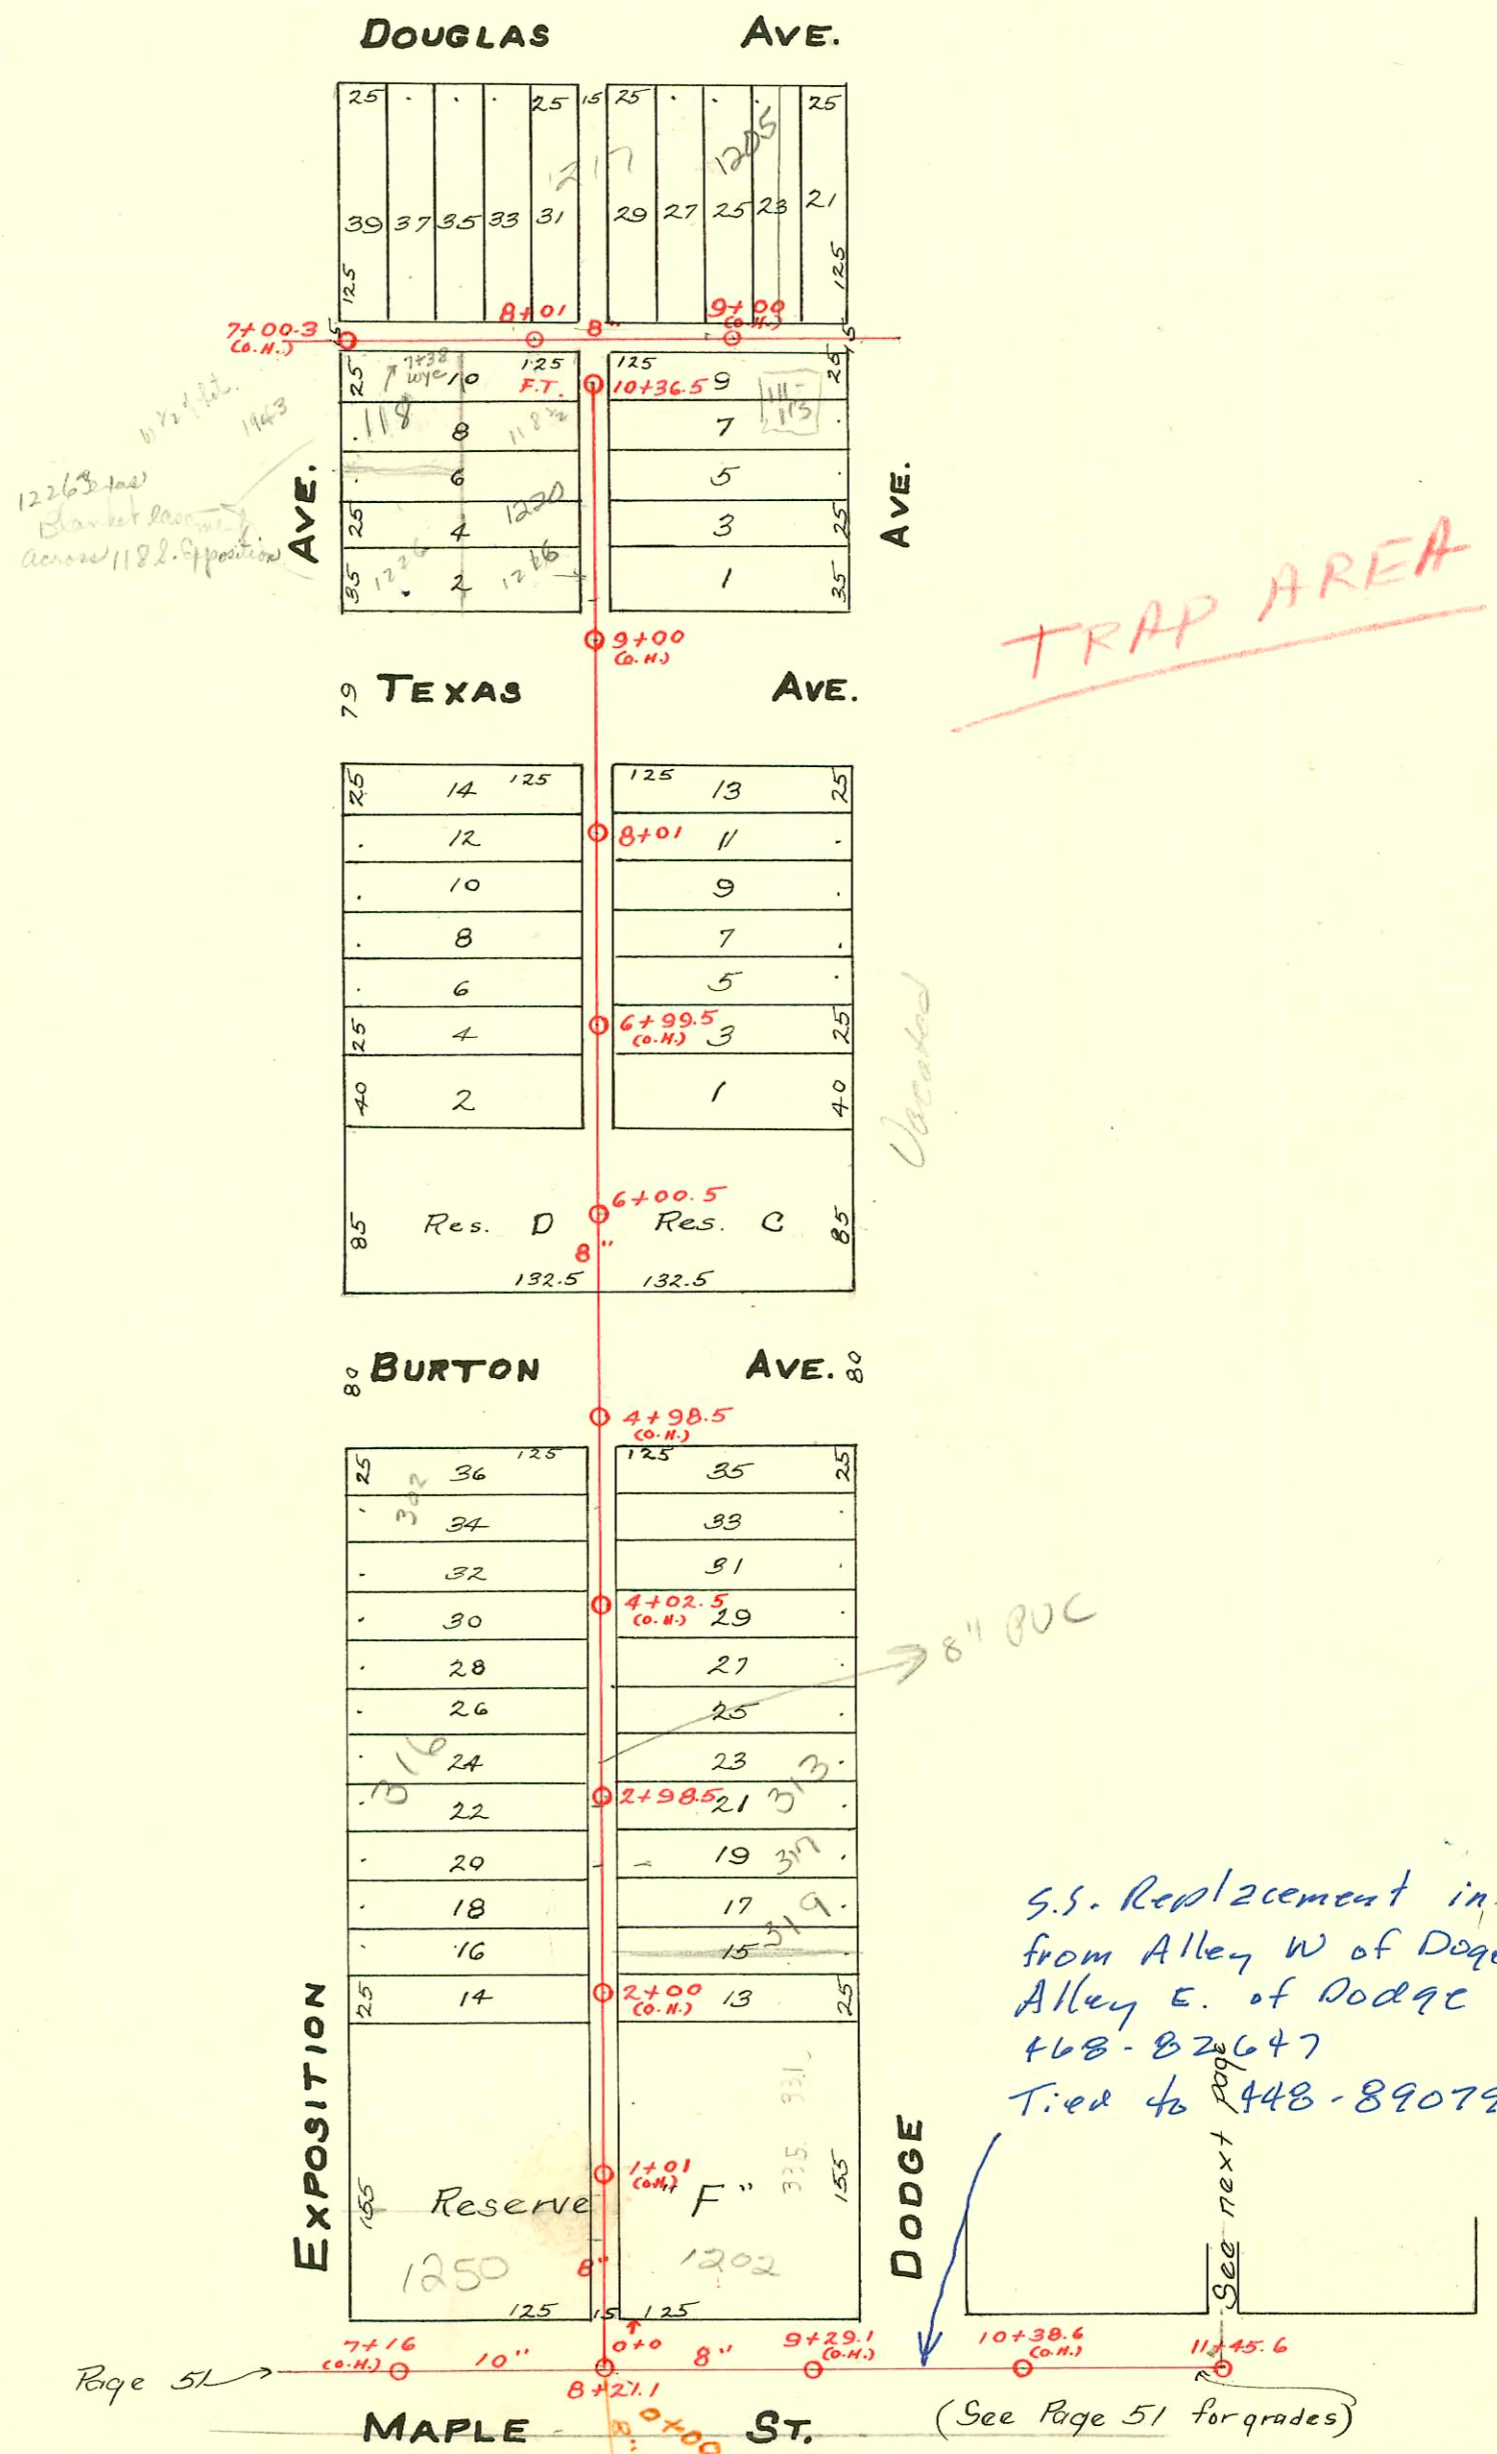 DOUGLAS AVE.
25 . . . 25 15 25 . . . 25
1217 1205
39 37 35 33 31 29 27 25 23 21
125 125
7+00.3 (O.H.) 8+01 8" 9+00 (O.H.)
15 15
25 7+38 wye 10 125 F.T. 10+36.5 125 9 25
111-113
118 8 118 1/2 7
W 1/2 of lot. 1943
6 5
25 4 1220 3 25
35 1226 2 1226 1 35
Blanket easement
across 118 S. Exposition
AVE. AVE.
9+00
(O.H.)
TRAP AREA
79 TEXAS AVE.
25 14 125 125 13 25
12 8+01 11
10 9
8 7
6 5
25 4 6+99.5 (O.H.) 3 25
40 2 1 40
Vacated
6+00.5
85 Res. D Res. C 85
8"
132.5 132.5
80 BURTON AVE. 80
4+98.5
(O.H.)
25 36 125 125 35 25
302
34 33
32 31
30 4+02.5 (O.H.) 29
28 27
8" PVC
26 25
24 23
316 313
22 2+98.5 21
20 19 317
18 17
319
16 15
25 14 2+00 (O.H.) 13 25
EXPOSITION
DODGE
331
335
1+01
(O.H.)
155 Reserve "F" 155
1250 8" 1202
125 15 125
S.S. Replacement in
from Alley W of
Alley E. of Dodge
468-82647
Tied to 448-89079
See next page
7+16 (O.H.) 10" 0+0 8" 9+29.1 (O.H.) 10+38.6 (O.H.) 11+45.6
Page 51
8+27.1
(See Page 51 for grades)
MAPLE ST.
8" 0+00